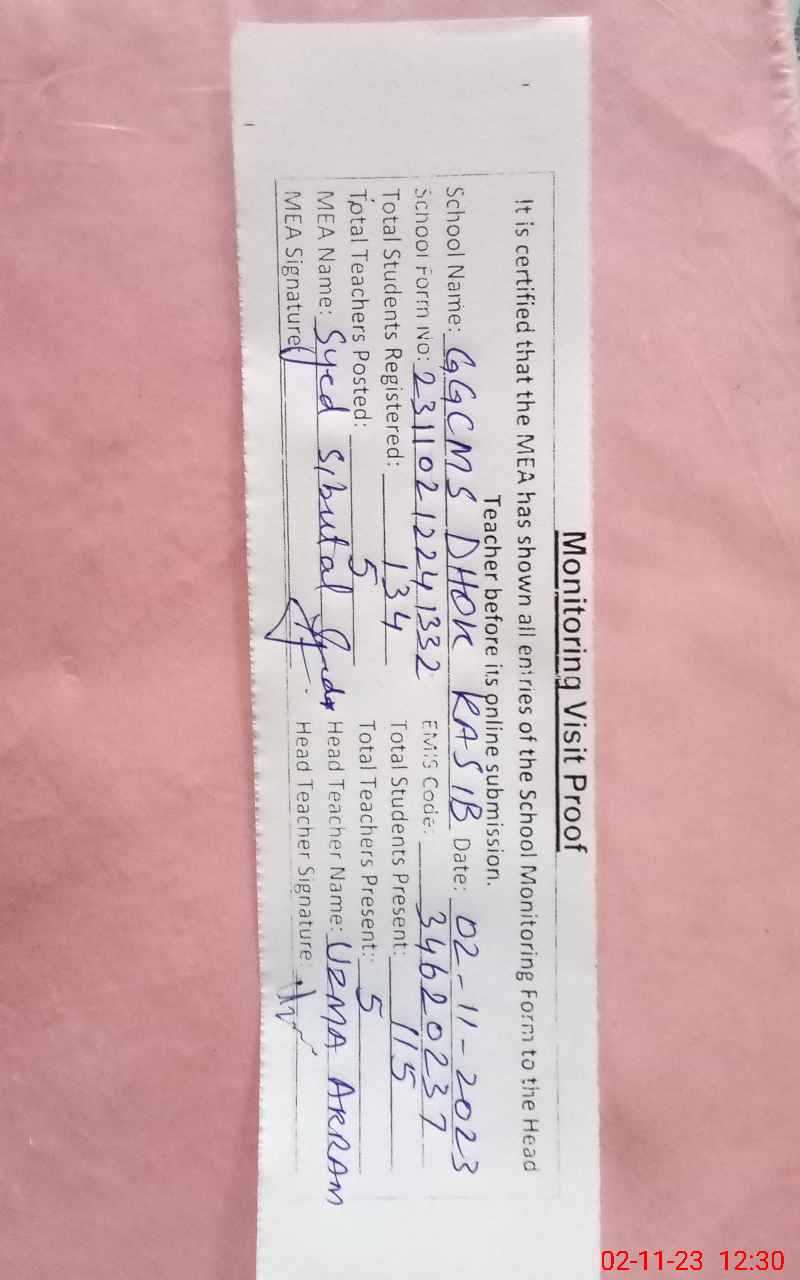 Monitoring Visit Proof
It is certified that the MEA has shown all entries of the School Monitoring Form to the Head
Teacher before its online submission.
School Name: GGCMS DHOK RASIB Date: 02-11-2023
School Form No: 23110212241332 EMIS Code: 34620237
Total Students Registered: 134 Total Students Present: 115
Total Teachers Posted: 5 Total Teachers Present: 5
MEA Name: Syed Sibutal Head Teacher Name: UZMA AKRAM
MEA Signature Head Teacher Signature:
02-11-23 12:30